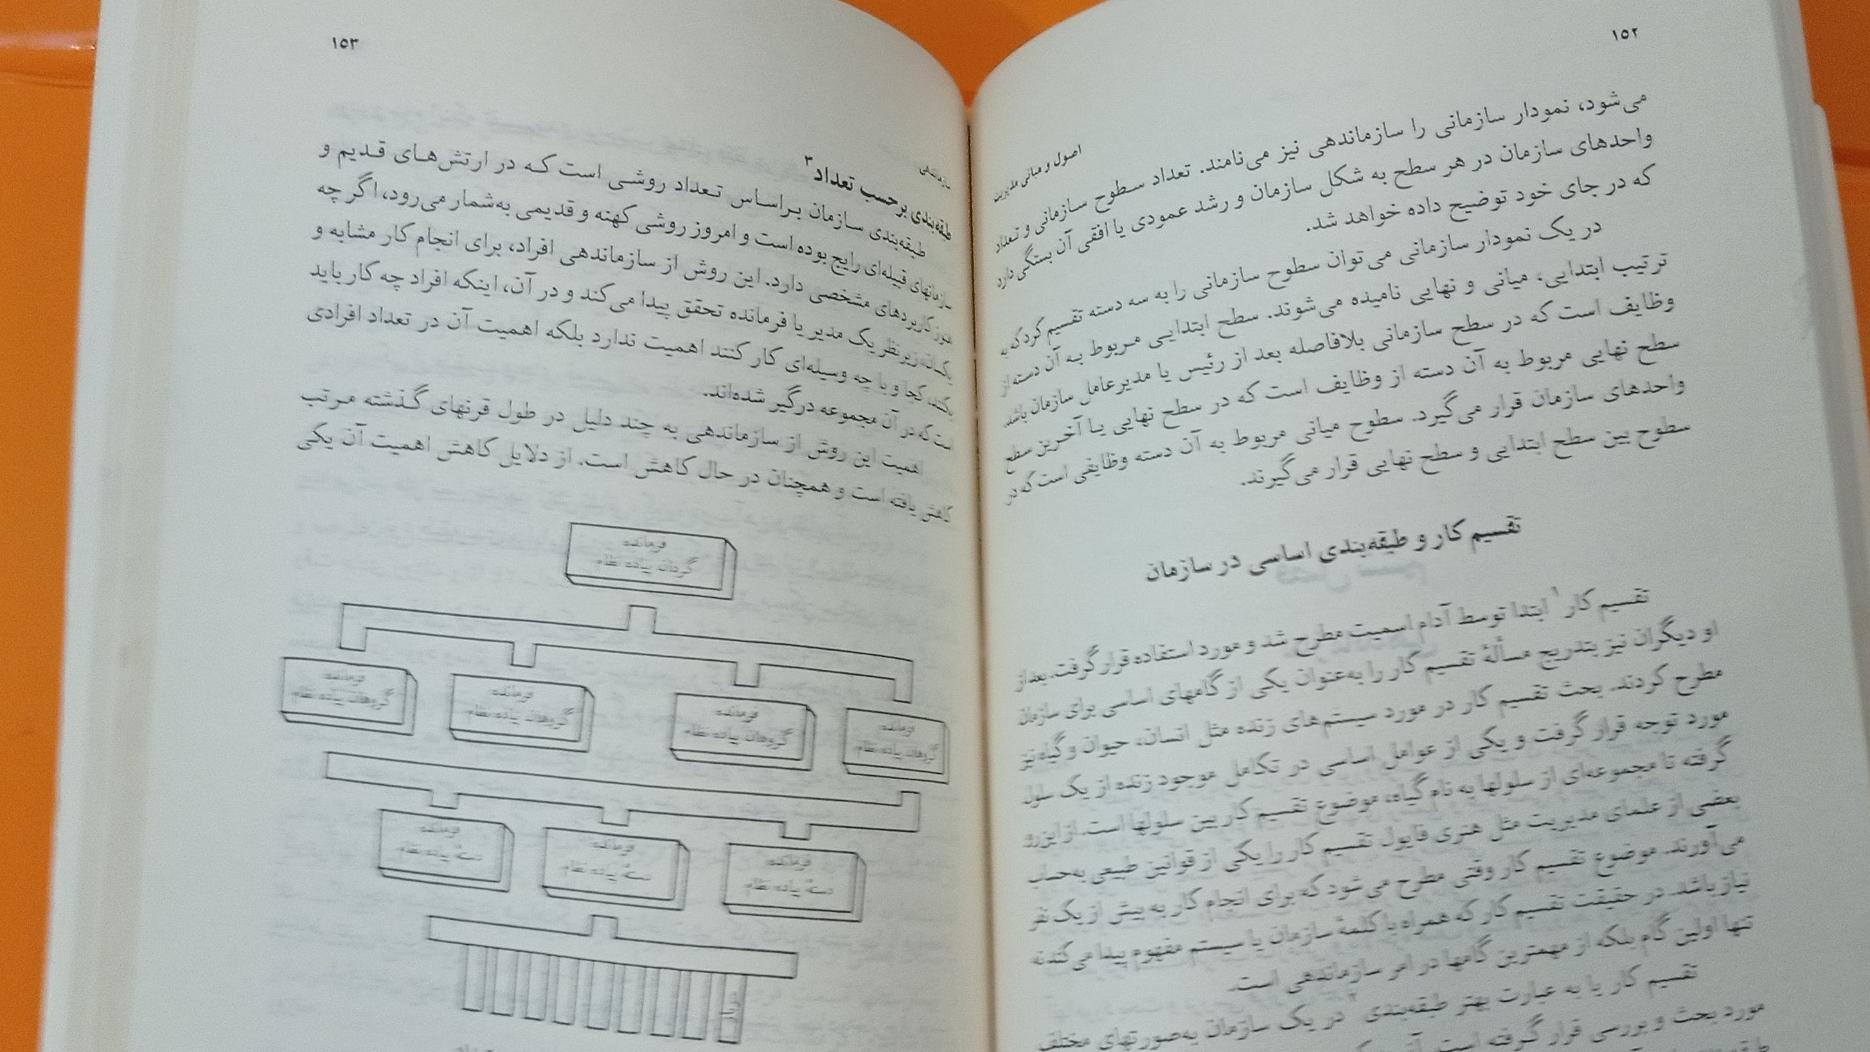 ۱۵۲
اصول و مبانی مدیریت
می‌شود، نمودار سازمانی را سازماندهی نیز می‌نامند. تعداد سطوح سازمانی و تعداد
واحدهای سازمان در هر سطح به شکل سازمان و رشد عمودی یا افقی آن بستگی دارد
که در جای خود توضیح داده خواهد شد.
در یک نمودار سازمانی می‌توان سطوح سازمانی را به سه دسته تقسیم کرد که به
ترتیب ابتدایی، میانی و نهایی نامیده می‌شوند. سطح ابتدایی مربوط به آن دسته از
وظایف است که در سطح سازمانی بلافاصله بعد از رئیس یا مدیرعامل سازمان باشد
سطح نهایی مربوط به آن دسته از وظایف است که در سطح نهایی یا آخرین سطح
واحدهای سازمان قرار می‌گیرد. سطوح میانی مربوط به آن دسته وظایفی است که در
سطوح بین سطح ابتدایی و سطح نهایی قرار می‌گیرند.
تقسیم کار و طبقه‌بندی اساسی در سازمان
تقسیم کار۱ ابتدا توسط آدام اسمیت مطرح شد و مورد استفاده قرار گرفت. بعد از
او دیگران نیز بتدریج مسألهٔ تقسیم کار را به‌عنوان یکی از گامهای اساسی برای سازمان
مطرح کردند. بحث تقسیم کار در مورد سیستم‌های زنده مثل انسان، حیوان و گیاه نیز
مورد توجه قرار گرفت و یکی از عوامل اساسی در تکامل موجود زنده از یک سلول
گرفته تا مجموعه‌ای از سلولها به نام گیاه، موضوع تقسیم کار بین سلولها است. از این‌رو
بعضی از علمای مدیریت مثل هنری فایول تقسیم کار را یکی از قوانین طبیعی به‌حساب
می‌آورند. موضوع تقسیم کار وقتی مطرح می‌شود که برای انجام کار به بیش از یک نفر
نیاز باشد. در حقیقت تقسیم کار که همراه با کلمهٔ سازمان یا سیستم مفهوم پیدا می‌کند نه
تنها اولین گام بلکه از مهمترین گامها در امر سازماندهی است.
تقسیم کار یا به عبارت بهتر طبقه‌بندی۲ در یک سازمان به‌صورتهای مختلف
مورد بحث و بررسی قرار گرفته است.
۱۵۳
سازماندهی
طبقه‌بندی برحسب تعداد۳
طبقه‌بندی سازمان براساس تعداد روشی است که در ارتش‌های قدیم و
سازمانهای قبیله‌ای رایج بوده است و امروز روشی کهنه و قدیمی به‌شمار می‌رود، اگر چه
هنوز کاربردهای مشخصی دارد. این روش از سازماندهی افراد، برای انجام کار مشابه و
یکسانه زیر نظر یک مدیر یا فرمانده تحقق پیدا می‌کند و در آن، اینکه افراد چه کار باید
بکنند، کجا و با چه وسیله‌ای کار کنند اهمیت ندارد بلکه اهمیت آن در تعداد افرادی
است که در آن مجموعه درگیر شده‌اند.
اهمیت این روش از سازماندهی به چند دلیل در طول قرنهای گذشته مرتب
کاهش یافته است و همچنان در حال کاهش است. از دلایل کاهش اهمیت آن یکی
فرمانده
گردان پیاده نظام
فرمانده
گروهان پیاده نظام
فرمانده
گروهان پیاده نظام
فرمانده
گروهان پیاده نظام
فرمانده
گروهان پیاده نظام
فرمانده
دستهٔ پیاده نظام
فرمانده
دستهٔ پیاده نظام
فرمانده
دستهٔ پیاده نظام